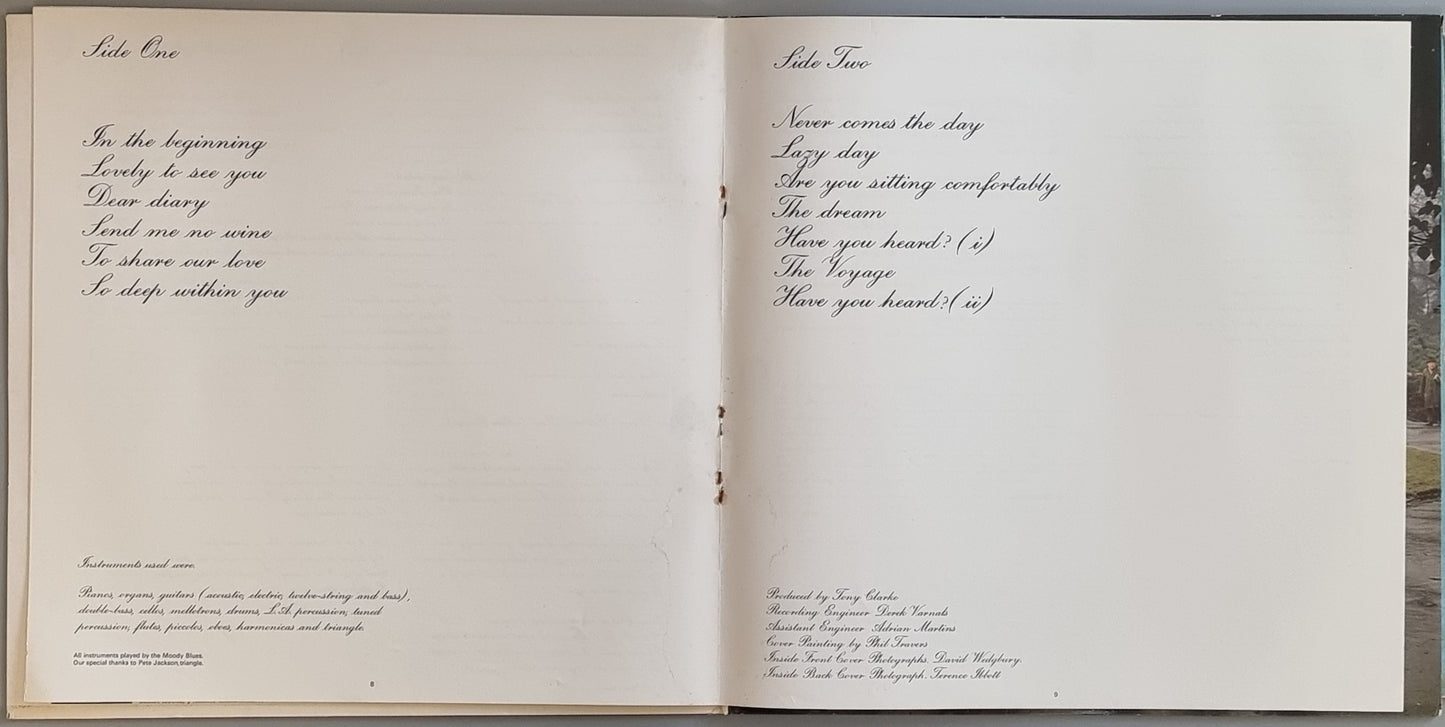 Side One
In the beginning
Lovely to see you
Dear diary
Send me no wine
To share our love
So deep within you
Instruments used were.
Pianos, organs, guitars (acoustic, electric, twelve-string and bass),
double-bass, cellos, mellotrons, drums, L.A. percussion, tuned
percussion, flutes, piccolos, oboes, harmonicas and triangle.
All instruments played by the Moody Blues.
Our special thanks to Pete Jackson,triangle.
8
Side Two
Never comes the day
Lazy day
Are you sitting comfortably
The dream
Have you heard? (i)
The Voyage
Have you heard? (ii)
Produced by Tony Clarke
Recording Engineer Derek Varnals
Assistant Engineer Adrian Martins
Cover Painting by Phil Travers
Inside Front Cover Photographs. David Wedgbury.
Inside Back Cover Photograph. Terence Ibbott
9